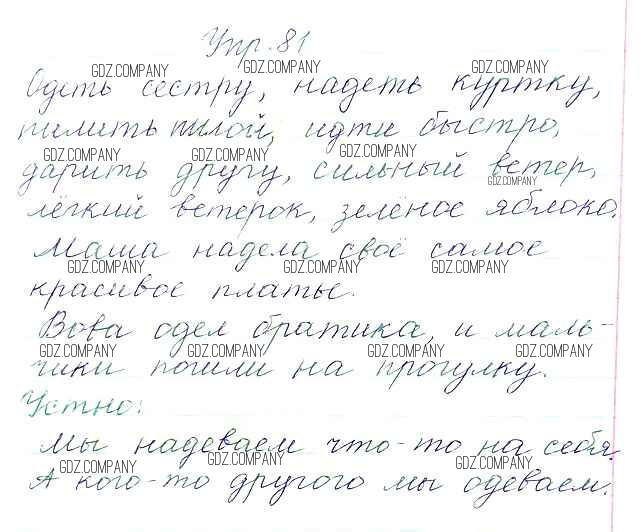 Упр. 81
GDZ.COMPANY GDZ.COMPANY GDZ.COMPANY
Одеть сестру, надеть куртку,
пилить пилой, идти быстро,
GDZ.COMPANY GDZ.COMPANY GDZ.COMPANY
дарить другу, сильный ветер,
GDZ.COMPANY
лёгкий ветерок, зелёное яблоко.
Маша надела своё самое
GDZ.COMPANY GDZ.COMPANY GDZ.COMPANY
красивое платье.
Вова одел братика, и маль-
GDZ.COMPANY GDZ.COMPANY GDZ.COMPANY GDZ.COMPANY
чики пошли на прогулку.
Устно:
Мы надеваем что-то на себя.
GDZ.COMPANY GDZ.COMPANY GDZ.COMPANY
А кого-то другого мы одеваем.